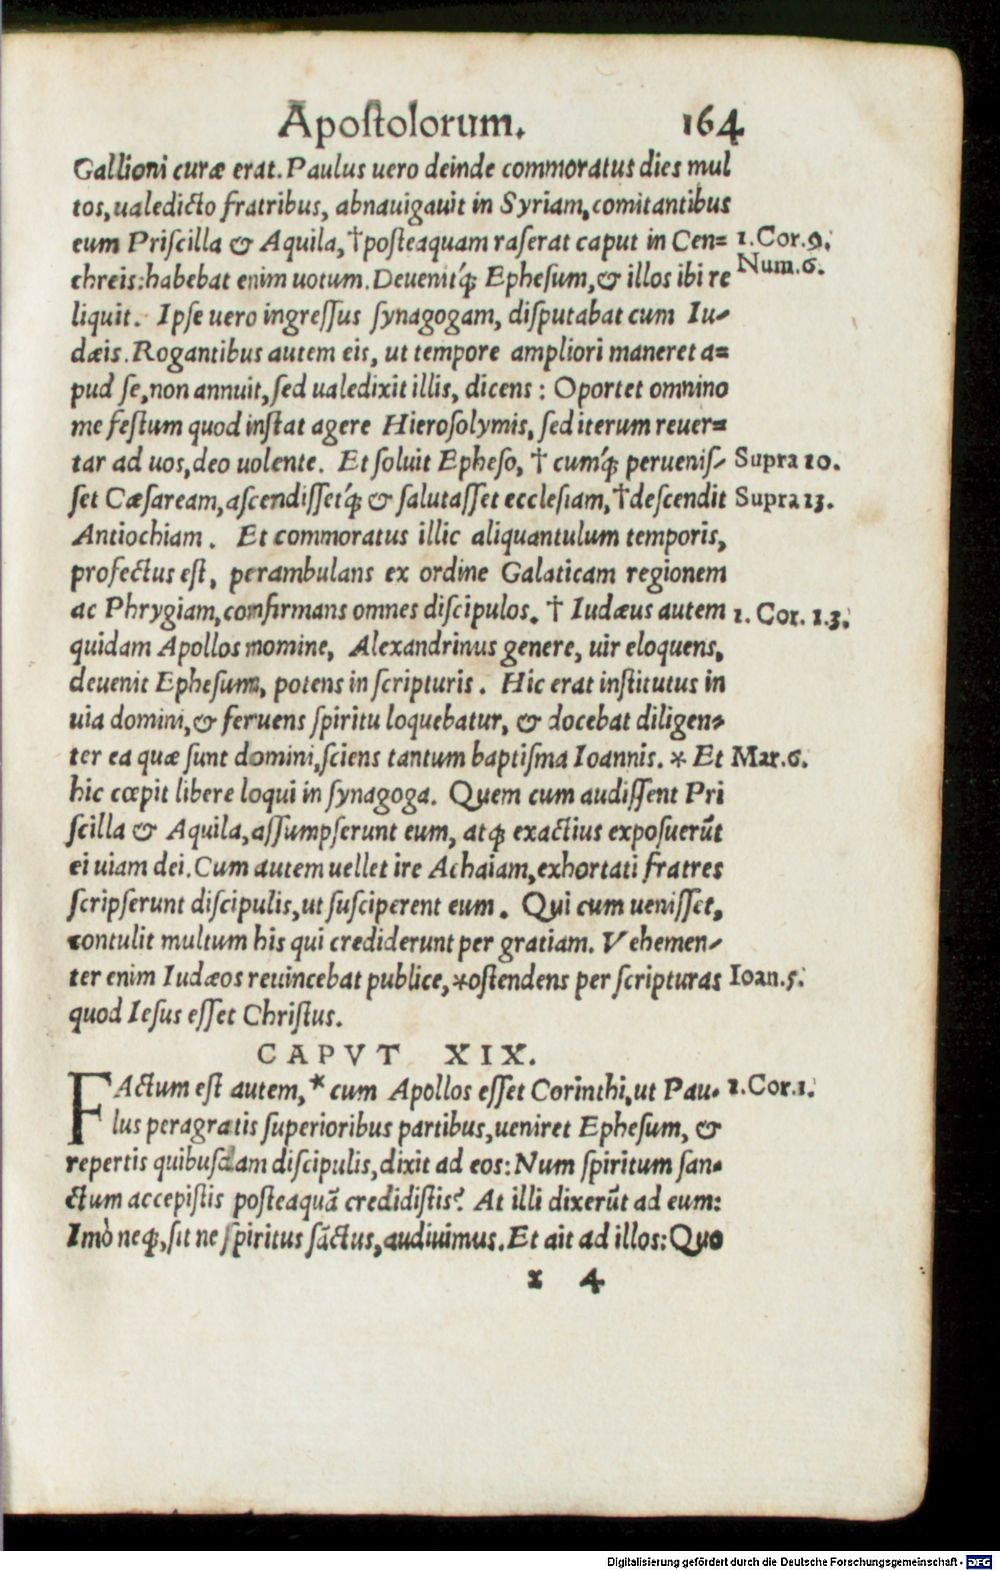 Apoſtolorum. 164
Gallioni curæ erat. Paulus uero deinde commoratus dies mul
tos, ualedicto fratribus, abnauigauit in Syriam, comitantibus
eum Priſcilla & Aquila, † poſteaquam raſerat caput in Cen= 1. Cor. 9.
chreis: habebat enim uotum. Deuenitq́; Epheſum, & illos ibi re Num. 6.
liquit. Ipſe uero ingreſſus ſynagogam, diſputabat cum Iu-
dæis. Rogantibus autem eis, ut tempore ampliori maneret a=
pud ſe, non annuit, ſed ualedixit illis, dicens: Oportet omnino
me feſtum quod inſtat agere Hieroſolymis, ſed iterum reuer=
tar ad uos, deo uolente. Et ſoluit Epheſo, † cumq́; perueniſ- Supra 10.
ſet Cæſaream, aſcendiſſetq́; & ſalutaſſet eccleſiam, † deſcendit Supra 13.
Antiochiam. Et commoratus illic aliquantulum temporis,
profectus eſt, perambulans ex ordine Galaticam regionem
ac Phrygiam, confirmans omnes diſcipulos. † Iudæus autem 1. Cor. 1.3.
quidam Apollos nomine, Alexandrinus genere, uir eloquens,
deuenit Epheſum, potens in ſcripturis. Hic erat inſtitutus in
uia domini, & feruens ſpiritu loquebatur, & docebat diligen-
ter ea quæ ſunt domini, ſciens tantum baptiſma Ioannis. * Et Mar. 6.
hic cœpit libere loqui in ſynagoga. Quem cum audiſſent Pri
ſcilla & Aquila, aſſumpſerunt eum, atq; exactius expoſuerūt
ei uiam dei. Cum autem uellet ire Achaiam, exhortati fratres
ſcripſerunt diſcipulis, ut ſuſciperent eum. Qui cum ueniſſet,
contulit multum his qui crediderunt per gratiam. Vehemen-
ter enim Iudæos reuincebat publice, * oſtendens per ſcripturas Ioan. 5.
quod Ieſus eſſet Chriſtus.
CAPVT XIX.
FActum eſt autem, * cum Apollos eſſet Corinthi, ut Pau- 1. Cor. 1.
lus peragratis ſuperioribus partibus, ueniret Epheſum, &
repertis quibuſdam diſcipulis, dixit ad eos: Num ſpiritum ſan-
ctum accepiſtis poſteaquã credidiſtis? At illi dixerūt ad eum:
Imò neq;, ſit ne ſpiritus ſãctus, audiuimus. Et ait ad illos: Quo
x 4
Digitalisierung gefördert durch die Deutsche Forschungsgemeinschaft - DFG